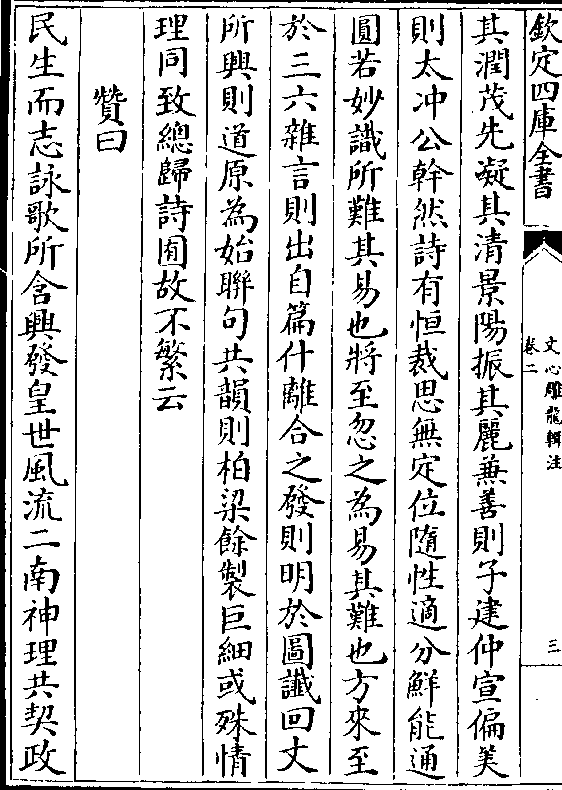 欽定四庫全書
文心雕龍輯注
卷二
三
其潤茂先凝其清景陽振其麗兼善則子建仲宣偏美
則太沖公幹然詩有恒裁思無定位隨性適分鮮能通
圓若妙識所難其易也將至忽之為易其難也方來至
於三六雜言則出自篇什離合之發則明於圖讖回文
所興則道原為始聯句共韻則柏梁餘製巨細或殊情
理同致總歸詩囿故不繁云
贊曰
民生而志詠歌所含興發皇世風流二南神理共契政